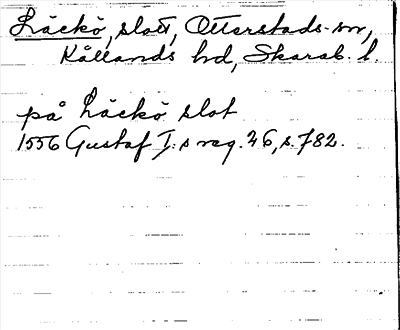 Läckö, slott, Otterstads sn,
Kållands hd, Skarab. l.
på Läckö slot
1556 Gustaf I:s reg. 26, s. 782.